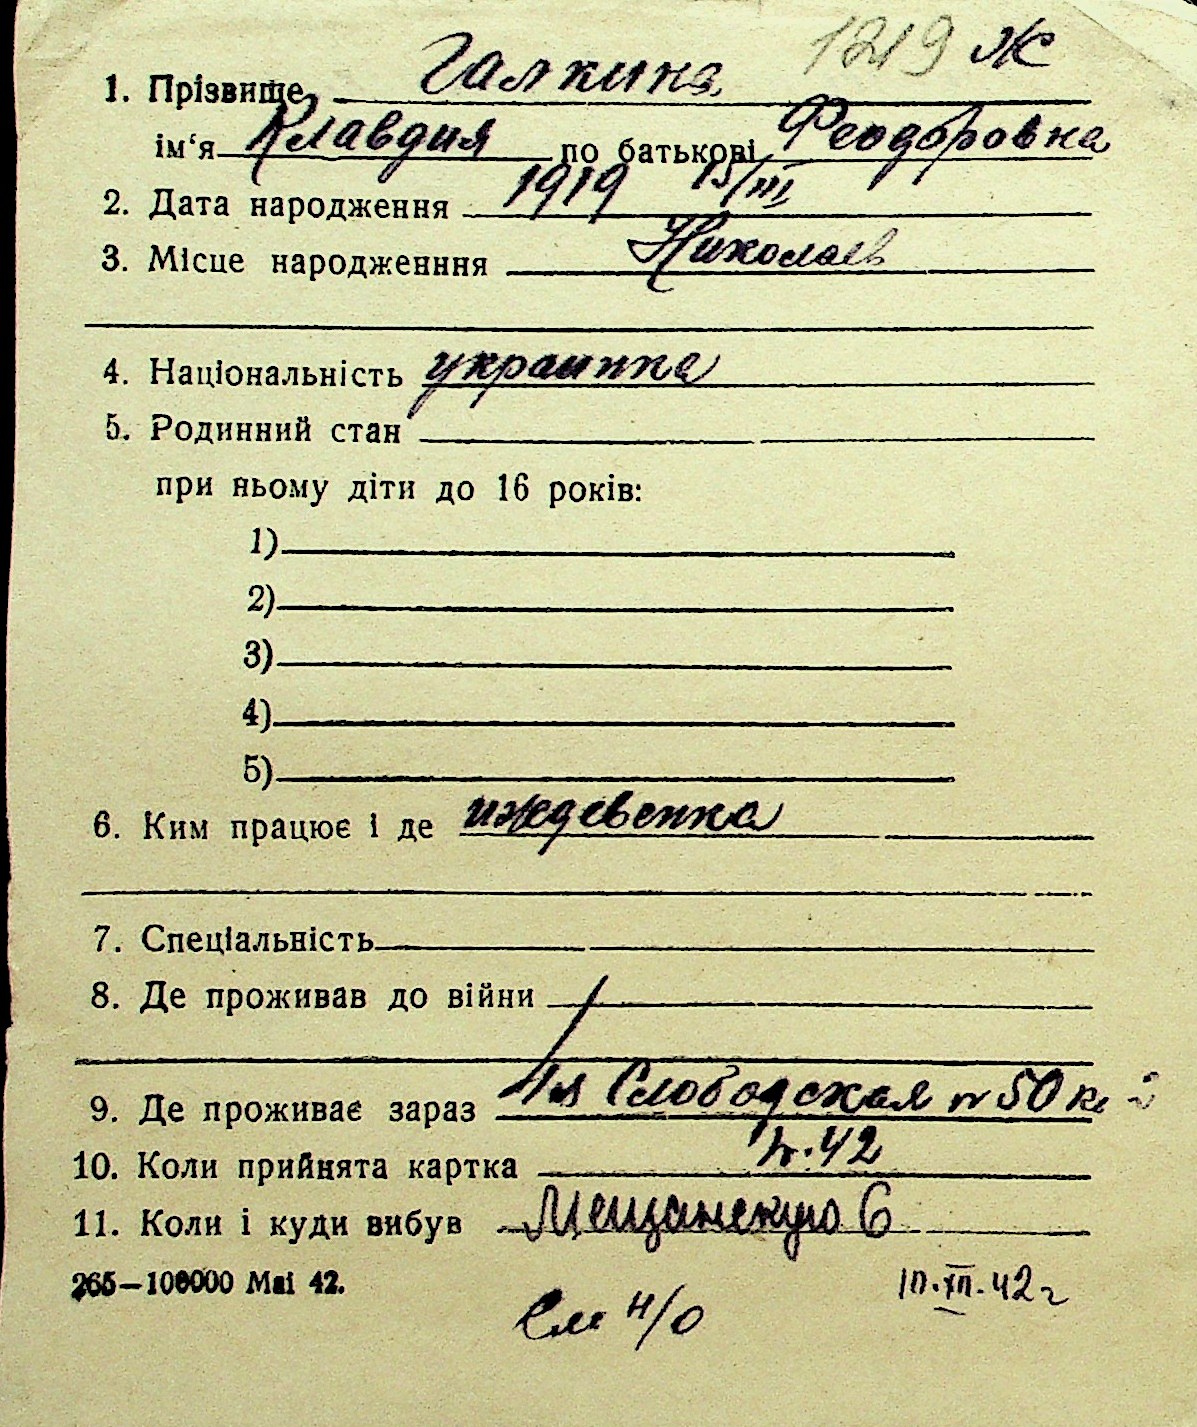 1219 Ж
1. Прізвище Галкина
ім‘я Клавдия по батькові Феодоровна
2. Дата народження 1919 15/III
3. Місце народженння Николаев
4. Національність украинка
5. Родинний стан
при ньому діти до 16 років:
1)
2)
3)
4)
5)
6. Ким працює і де иждевенка
7. Спеціальність
8. Де проживав до війни
9. Де проживає зараз 4я Слободская № 50 кв 2
10. Коли прийнята картка 42
11. Коли і куди вибув Мещанскую 6
265—100000 Маі 42.
См н/о